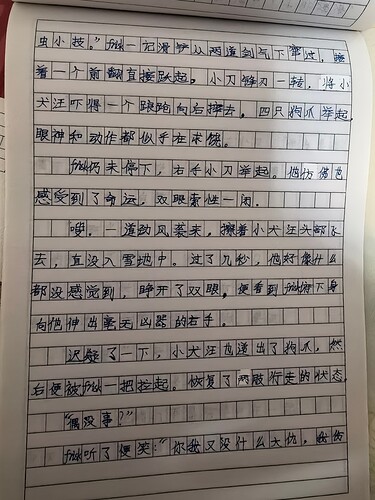 虫小技。"fish一记滑铲从两道剑气下穿过，随
着一个前翻直接跃起。小刀锋刃一转，将小
犬汪吓得一个踉跄向后摔去，四只狗爪举起，
眼神和动作都似乎在求饶。
fish仍未停下，右手小刀举起。他仿佛也
感受到了命运，双眼索性一闭。
嗖，一道劲风袭来，擦着小犬汪头部飞
去，直没入雪地中。过了几秒，他好像什么
都没感觉到，睁开了双眼，便看到fish俯下身
向他伸出毫无凶器的右手。
迟疑了一下，小犬汪也递出了狗爪，然
后便被fish一把拉起。恢复了两肢行走的状态。
"偶没事？"
fish听了便笑："你我又没什么大仇，